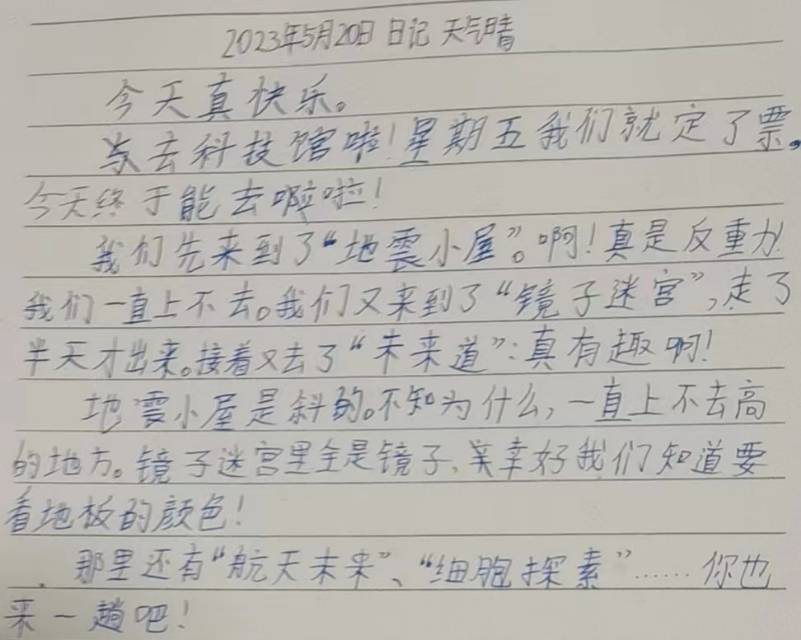 2023年5月20日 日记 天气晴
今天真快乐。
去科技馆啦!星期五我们就定了票,
今天终于能去啦!
我们先来到了“地震小屋”。啊!真是反重力
我们一直上不去。我们又来到了“镜子迷宫”,走了
半天才出来。接着又去了“未来道”:真有趣啊!
地震小屋是斜的。不知为什么,一直上不去高
的地方。镜子迷宫里全是镜子、幸好我们知道要
看地板的颜色!
那里还有“航天未来”、“细胞探索”……你也
来一趟吧!